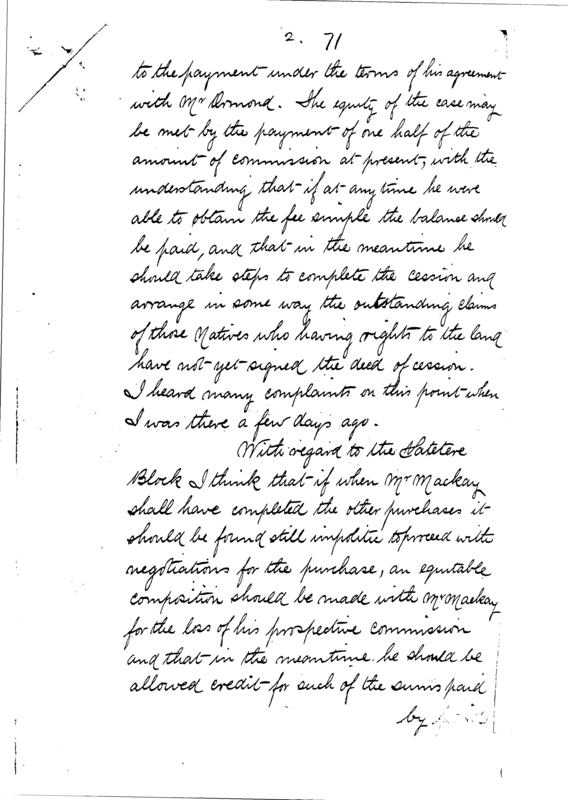 2. 71
to the payment under the terms of his agreement
with Mr Ormond. The equity of the case may
be met by the payment of one half of the
amount of commission at present, with the
understanding that if at any time he were
able to obtain the fee simple the balance should
be paid, and that in the meantime he
should take steps to complete the cession and
arrange in some way the outstanding claims
of those Natives who having rights to the land
have not yet signed the deed of cession.
I heard many complaints on this point when
I was there a few days ago.
With regard to the Patetere
Block I think that if when Mr Mackay
shall have completed the other purchases it
should be found still impolitic to proceed with
negotiations for the purchase, an equitable
composition should be made with Mr Mackay
for the loss of his prospective commission
and that in the meantime he should be
allowed credit for such of the sums paid
by